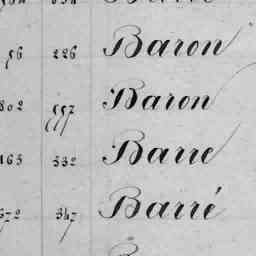 56 226 Baron
802 557 Baron
165 332 Barre
672 347 Barré